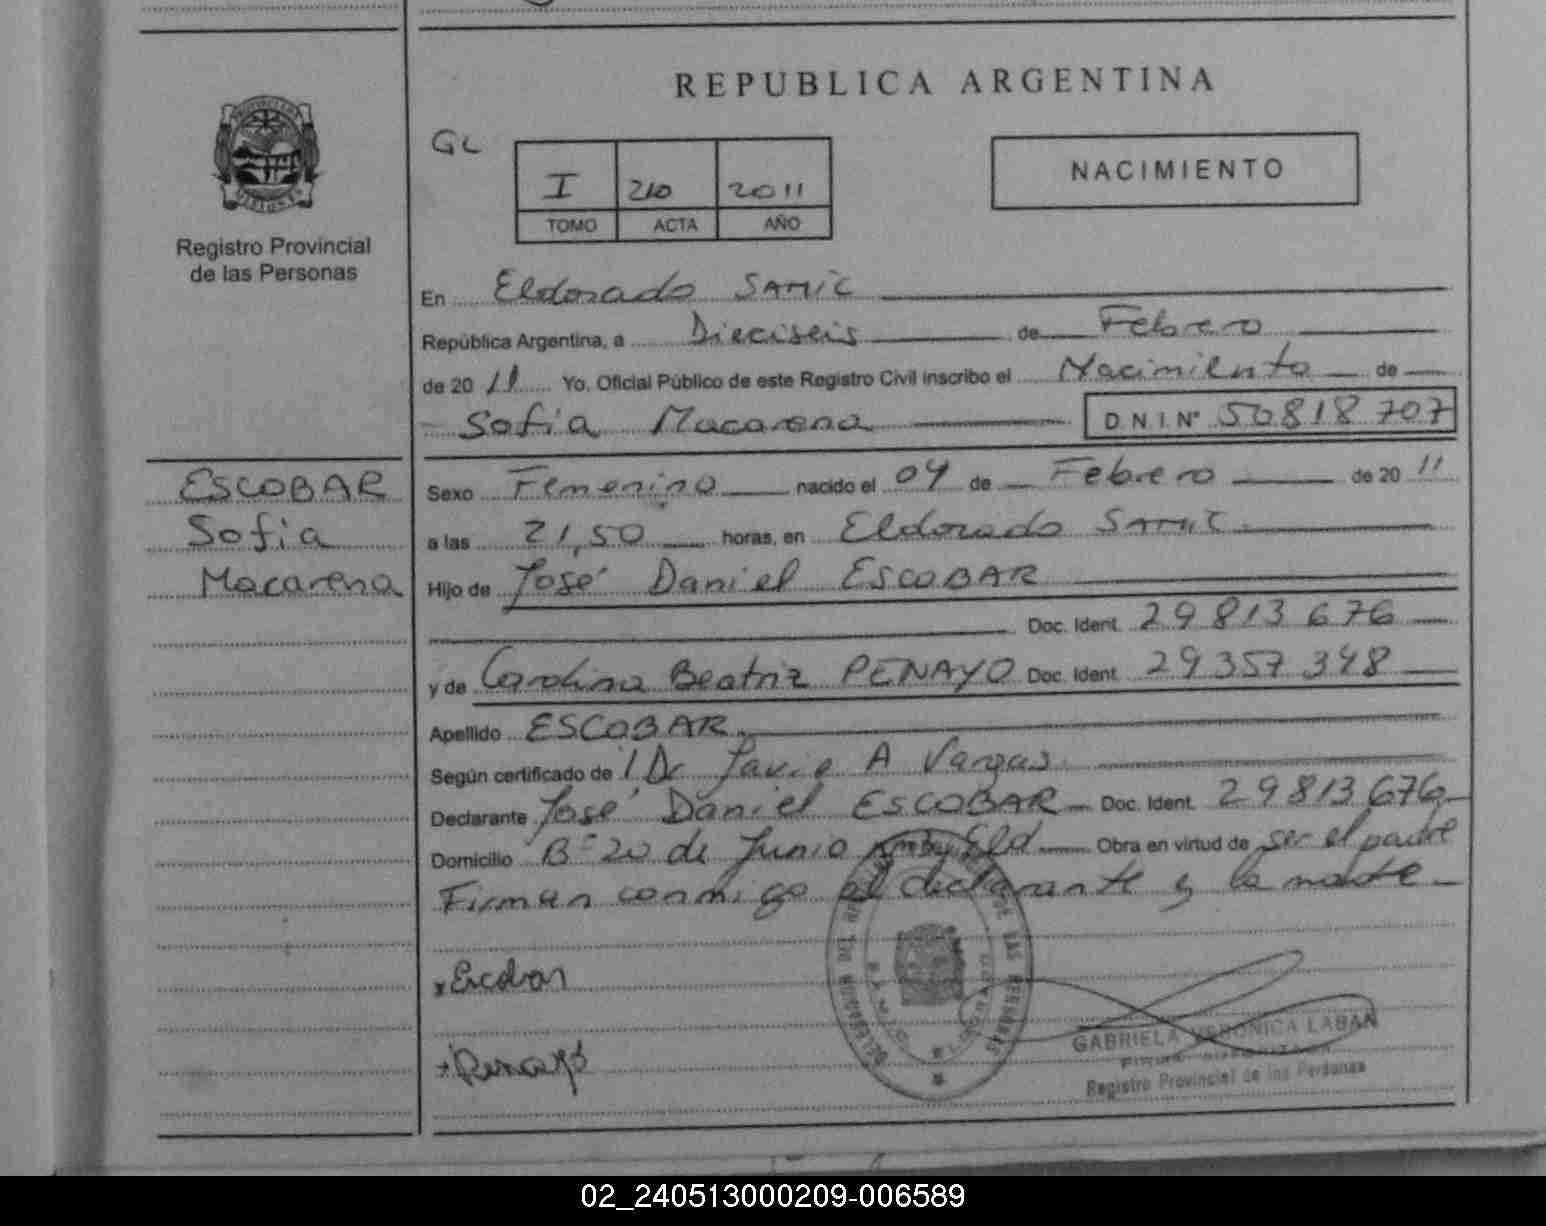 REPUBLICA ARGENTINA
GL
I 210 2011
TOMO ACTA AÑO
NACIMIENTO
Registro Provincial
de las Personas
En Eldorado SAMIC
República Argentina, a Dieciseis de Febrero
de 2011 Yo, Oficial Público de este Registro Civil inscribo el Nacimiento de
Sofia Macarena D.N.I. Nº 50818707
ESCOBAR
Sofia
Macarena
Sexo Femenino nacido el 04 de Febrero de 2011
a las 21,50 horas, en Eldorado SAMIC
Hijo de José Daniel ESCOBAR
Doc. Ident. 29813676
y de Carolina Beatriz PENAYO Doc. Ident. 29357348
Apellido ESCOBAR
Según certificado de Dr Javier A Vargas
Declarante José Daniel ESCOBAR Doc. Ident. 29813676
Domicilio Bº 20 de Junio Eld Obra en virtud de ser el padre
Firman conmigo el declarante y la madre
Escobar
Penayo
GABRIELA VERONICA LABAN
Registro Provincial de las Personas
02_240513000209-006589